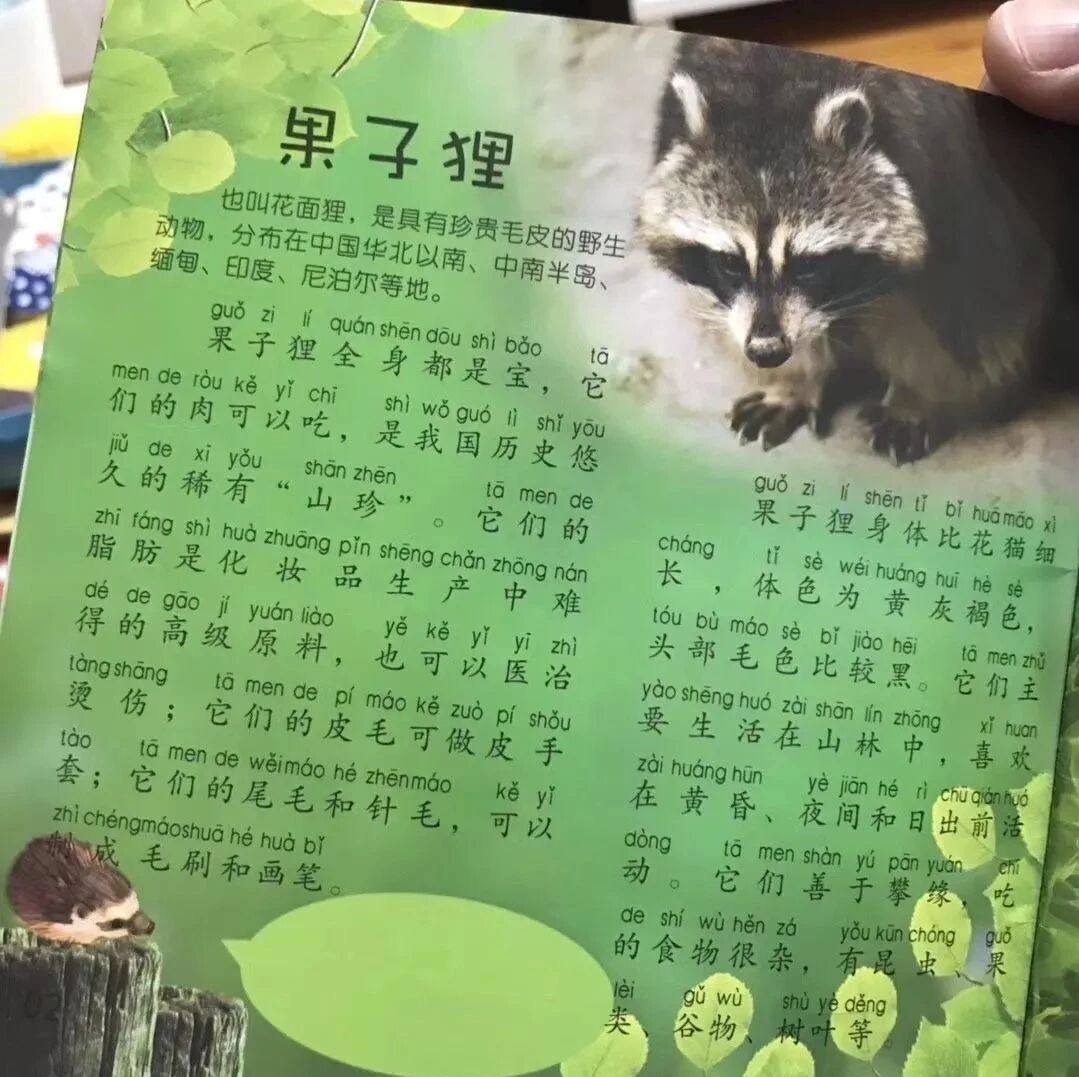 果子狸
也叫花面狸，是具有珍贵毛皮的野生
动物，分布在中国华北以南、中南半岛、
缅甸、印度、尼泊尔等地。
guǒ zi lí quán shēn dōu shì bǎo tā
果子狸全身都是宝，它
men de ròu kě yǐ chī shì wǒ guó lì shǐ yōu
们的肉可以吃，是我国历史悠
jiǔ de xī yǒu shān zhēn tā men de
久的稀有“山珍”。它们的
zhī fáng shì huà zhuāng pǐn shēng chǎn zhōng nán
脂肪是化妆品生产中难
dé de gāo jí yuán liào yě kě yǐ yī zhì
得的高级原料，也可以医治
tàng shāng tā men de pí máo kě zuò pí shǒu
烫伤；它们的皮毛可做皮手
tào tā men de wěi máo hé zhēn máo kě yǐ
套；它们的尾毛和针毛，可以
zhì chéng máo shuā hé huà bǐ
制成毛刷和画笔。
guǒ zi lí shēn tǐ bǐ huā māo xì
果子狸身体比花猫细
cháng tǐ sè wéi huáng huī hè sè
长，体色为黄灰褐色，
tóu bù máo sè bǐ jiào hēi tā men zhǔ
头部毛色比较黑。它们主
yào shēng huó zài shān lín zhōng xǐ huan
要生活在山林中，喜欢
zài huáng hūn yè jiān hé rì chū qián huó
在黄昏、夜间和日出前活
dòng tā men shàn yú pān yuán chī
动。它们善于攀缘，吃
de shí wù hěn zá yǒu kūn chóng guǒ
的食物很杂，有昆虫、果
lèi gǔ wù shù yè děng
类、谷物、树叶等。
02